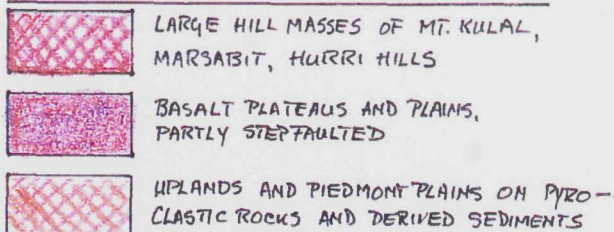 LARGE HILL MASSES OF MT. KULAL,
MARSABIT, HURRI HILLS
BASALT PLATEAUS AND PLAINS,
PARTLY STEPFAULTED
UPLANDS AND PIEDMONT PLAINS ON PYRO-
CLASTIC ROCKS AND DERIVED SEDIMENTS